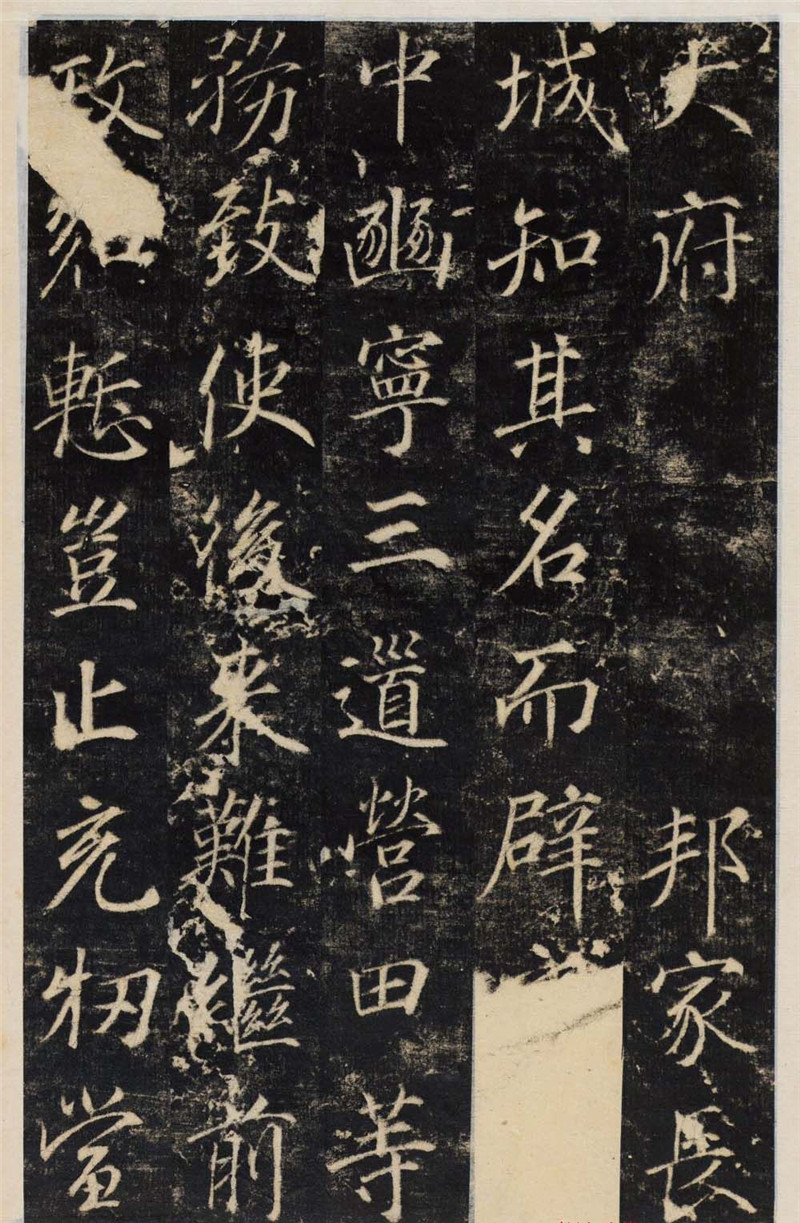 大府邦家長
城知其名而辟
中豳寧三道營田等
務致使後来難繼前
政知慙豈止充牣當